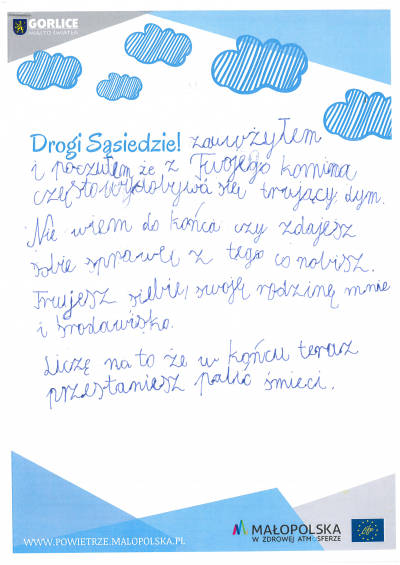 GORLICE
MIASTO ŚWIATŁA
Drogi Sąsiedzie! zauwżyłem
i poczułem że z Twojego komina
często wydobywa się trujący dym.
Nie wiem do końca czy zdajesz
sobie sprawę z tego co robisz.
Trujesz siebie, swoją rodzinę mnie
i środowisko.
Liczę na to że w końcu teraz
przestaniesz palić śmieci.
MAŁOPOLSKA
W ZDROWEJ ATMOSFERZE
life
WWW.POWIETRZE.MALOPOLSKA.PL